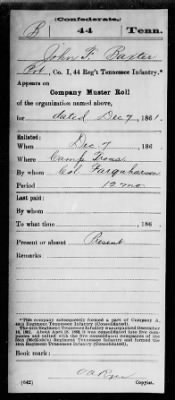 (Confederate.)
B 44 Tenn.
John F. Baxter
Pvt, Co. I, 44 Reg't Tennessee Infantry.*
Appears on
Company Muster Roll
of the organization named above,
for dated Dec 7, 1861.
Enlisted:
When Dec 7, 186
Where Camp Trous
By whom Col Farquharson
Period 12 mo
Last paid:
By whom
To what time , 186 .
Present or absent Present
Remarks:
*This company subsequently formed a part of Company A,
44th Regiment Tennessee Infantry (Consolidated).
Book mark:
(642) Copyist.